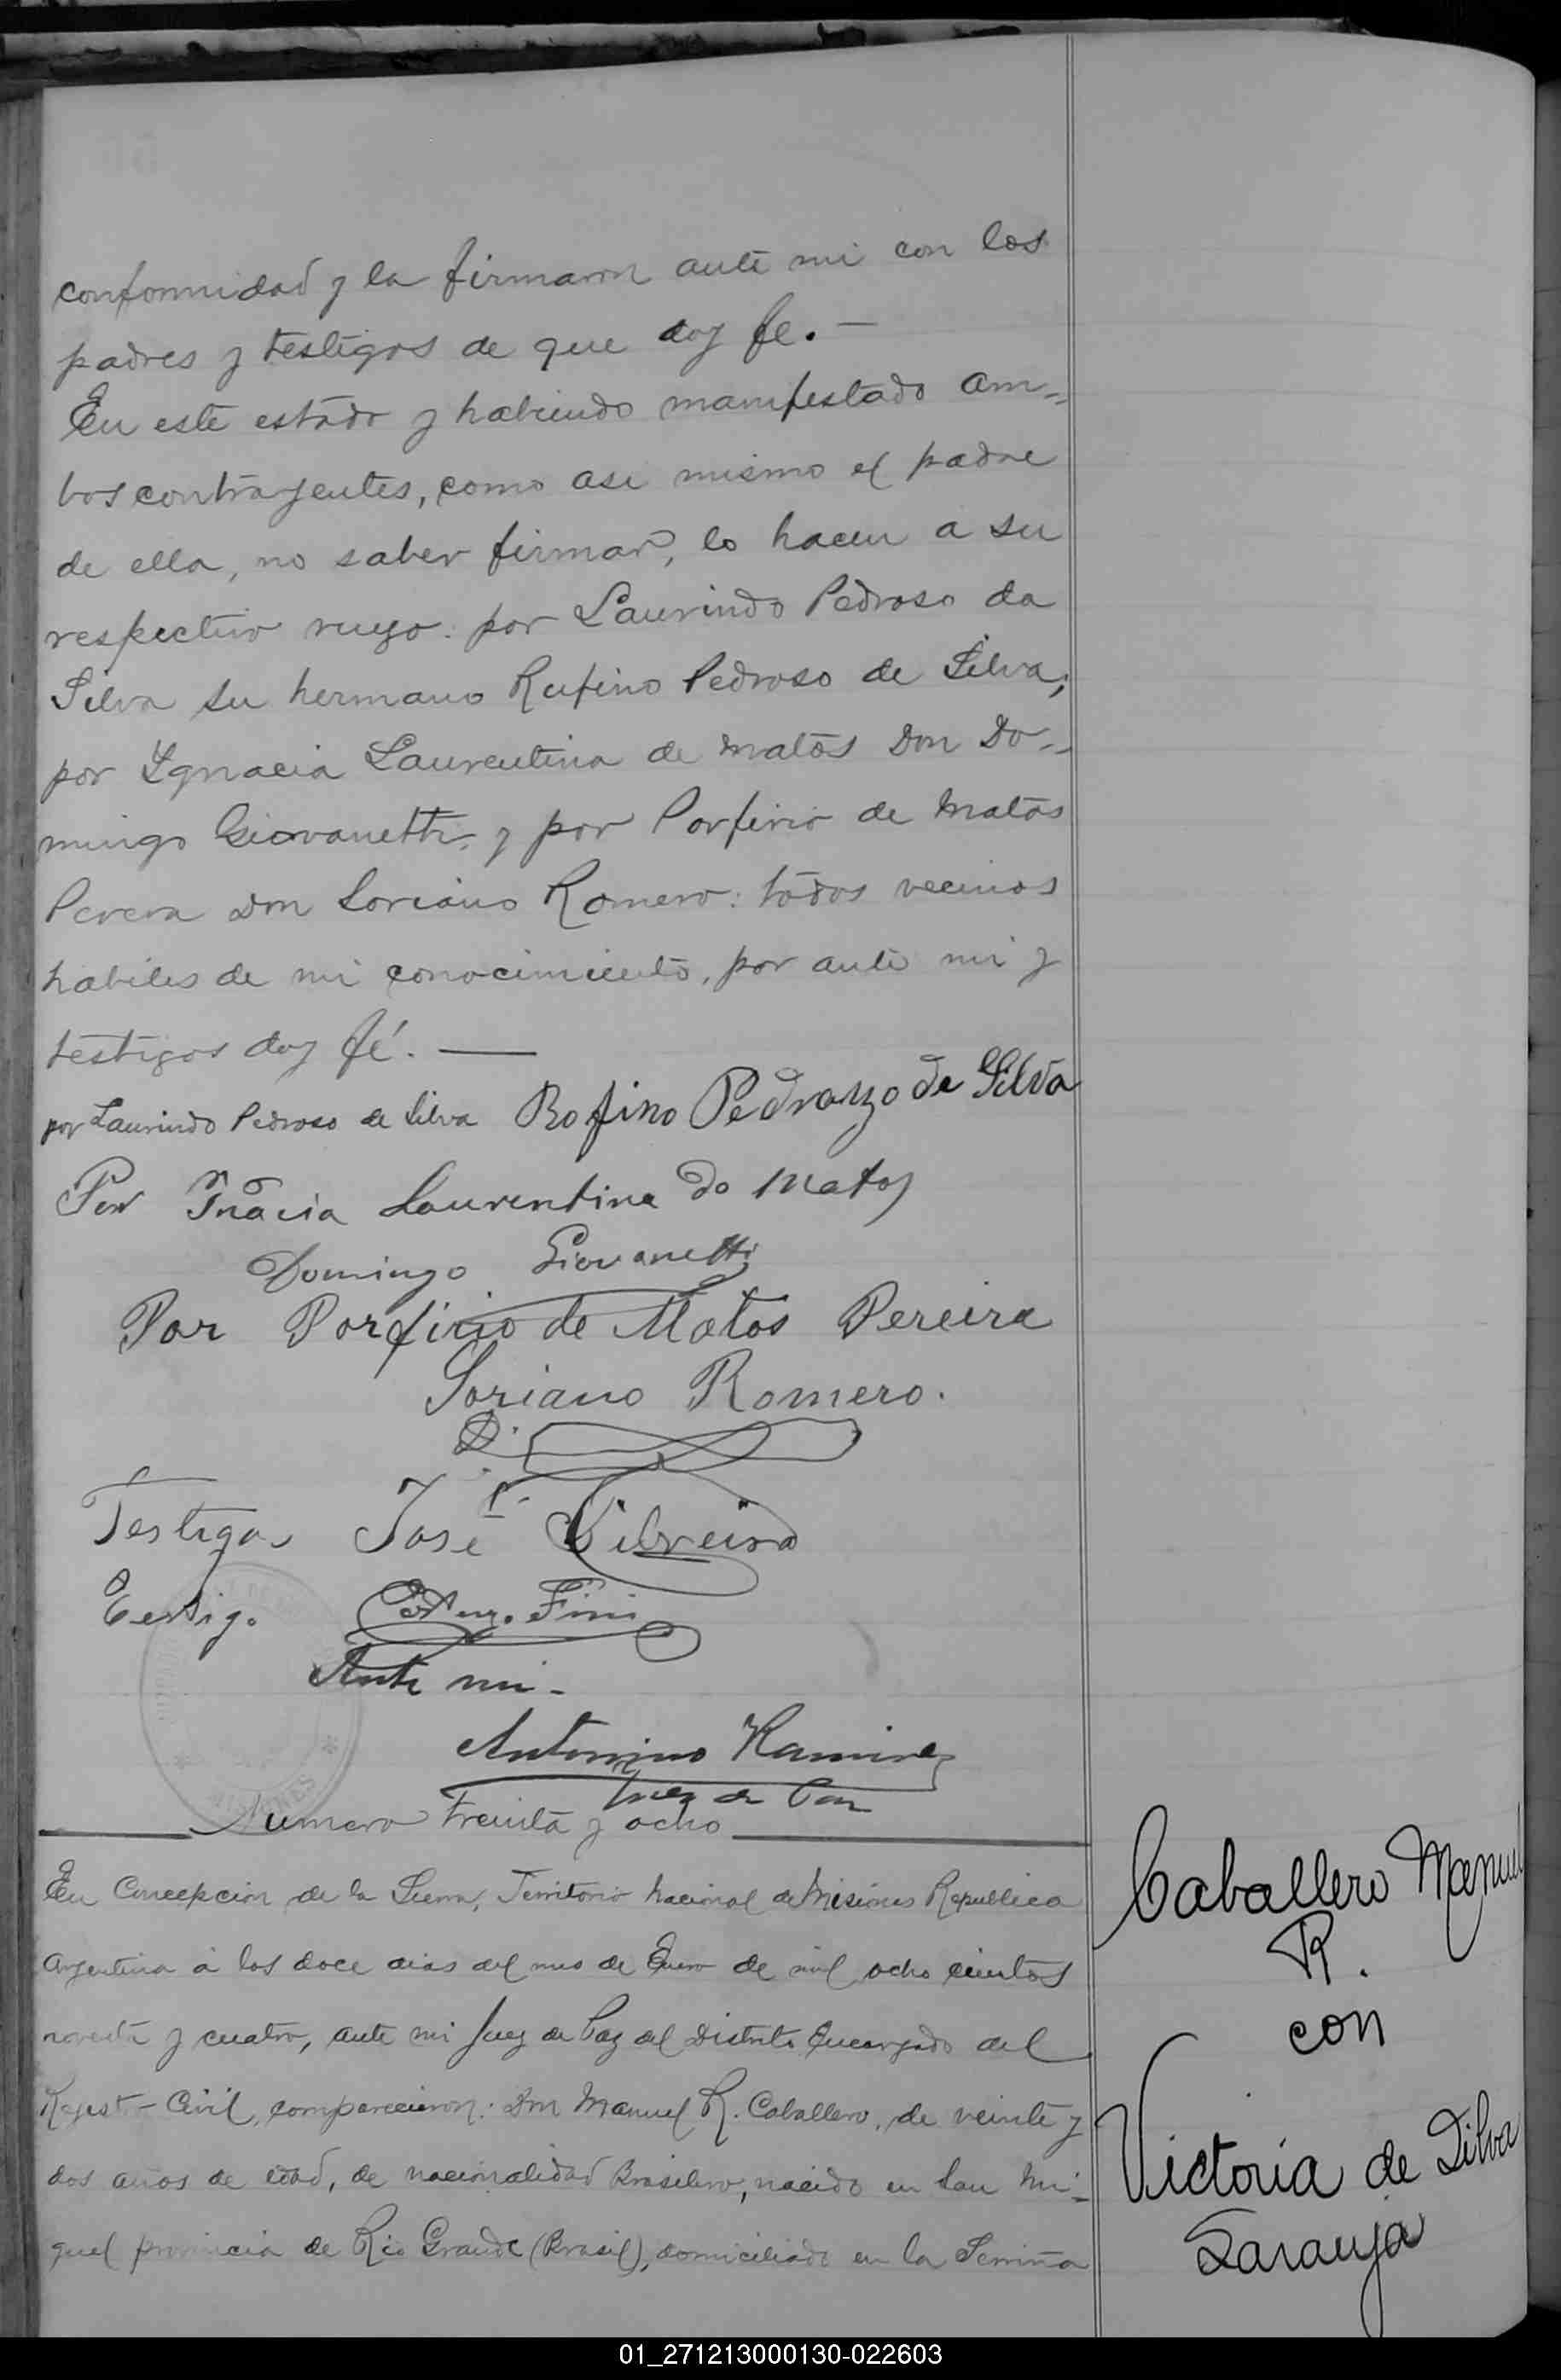 conformidad y la firmaron ante mi con los
padres y testigos de que doy fe. —
En este estado y habiendo manifestado am-
bos contrayentes, como asi mismo el padre
de ella, no saber firmar, lo hacen a su
respectivo ruego: por Laurindo Pedroso da
Silva su hermano Rufino Pedroso de Silva;
por Ygnacia Laurentina de Matos Don Do-
mingo Giovanetti, y por Porfirio de Matos
Perera Don Soriano Romero: todos vecinos
habiles de mi conocimiento, por ante mi y
testigos doy fé. —
por Laurindo Pedroso de Silva Rofino Pedrozo de Silva
Por Inacia Laurentina do Matos
Domingo Giovanetti
Por Porfirio de Matos Pereira
Soriano Romero.
Testigo José Silveira
Testigo Fini
Ante mi -
Antonino Ramirez
Juez de Paz
Numero treinta y ocho
En Concepcion de la Sierra, Territorio Nacional de Misiones Republica
Argentina á los doce dias del mes de Enero de mil ocho cientos
noventa y cuatro, ante mi Juez de Paz del Distrito Encargado del
Registro Civil, comparecieron: Don Manuel R. Caballero, de veinte y
dos años de edad, de nacionalidad Brasilero, nacido en San Mi-
guel provincia de Rio Grande (Brasil), domiciliado en la
Caballero Manuel
R.
con
Victoria de Silva
Laranja
MISIONES
01_271213000130-022603